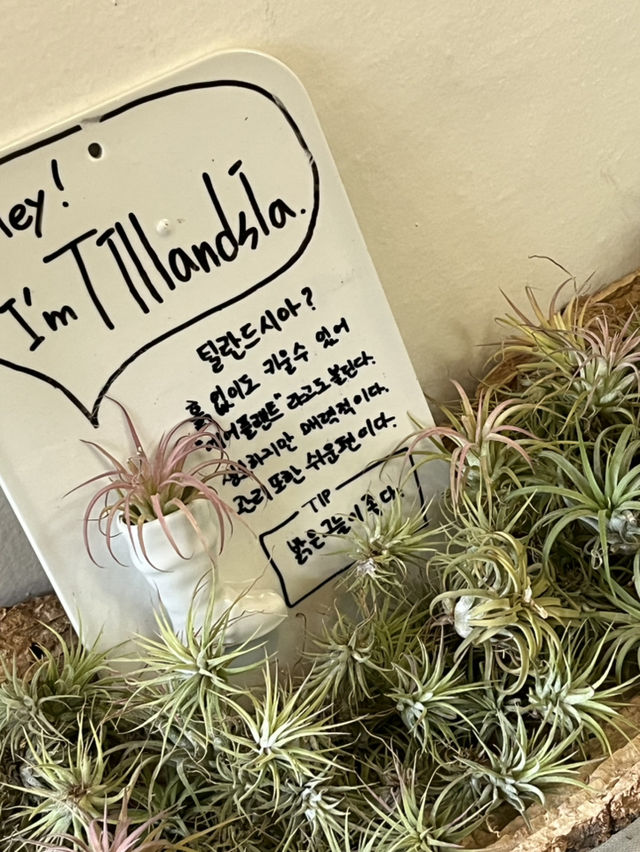 Hey!
I'm TIllandsIa.
틸란드시아?
흙 없이도 키울수 있어
"에어플랜트" 라고도 불린다.
하지만 매력적이다.
관리 또한 쉬운편이다.
TIP
밝은 그늘이 좋다.